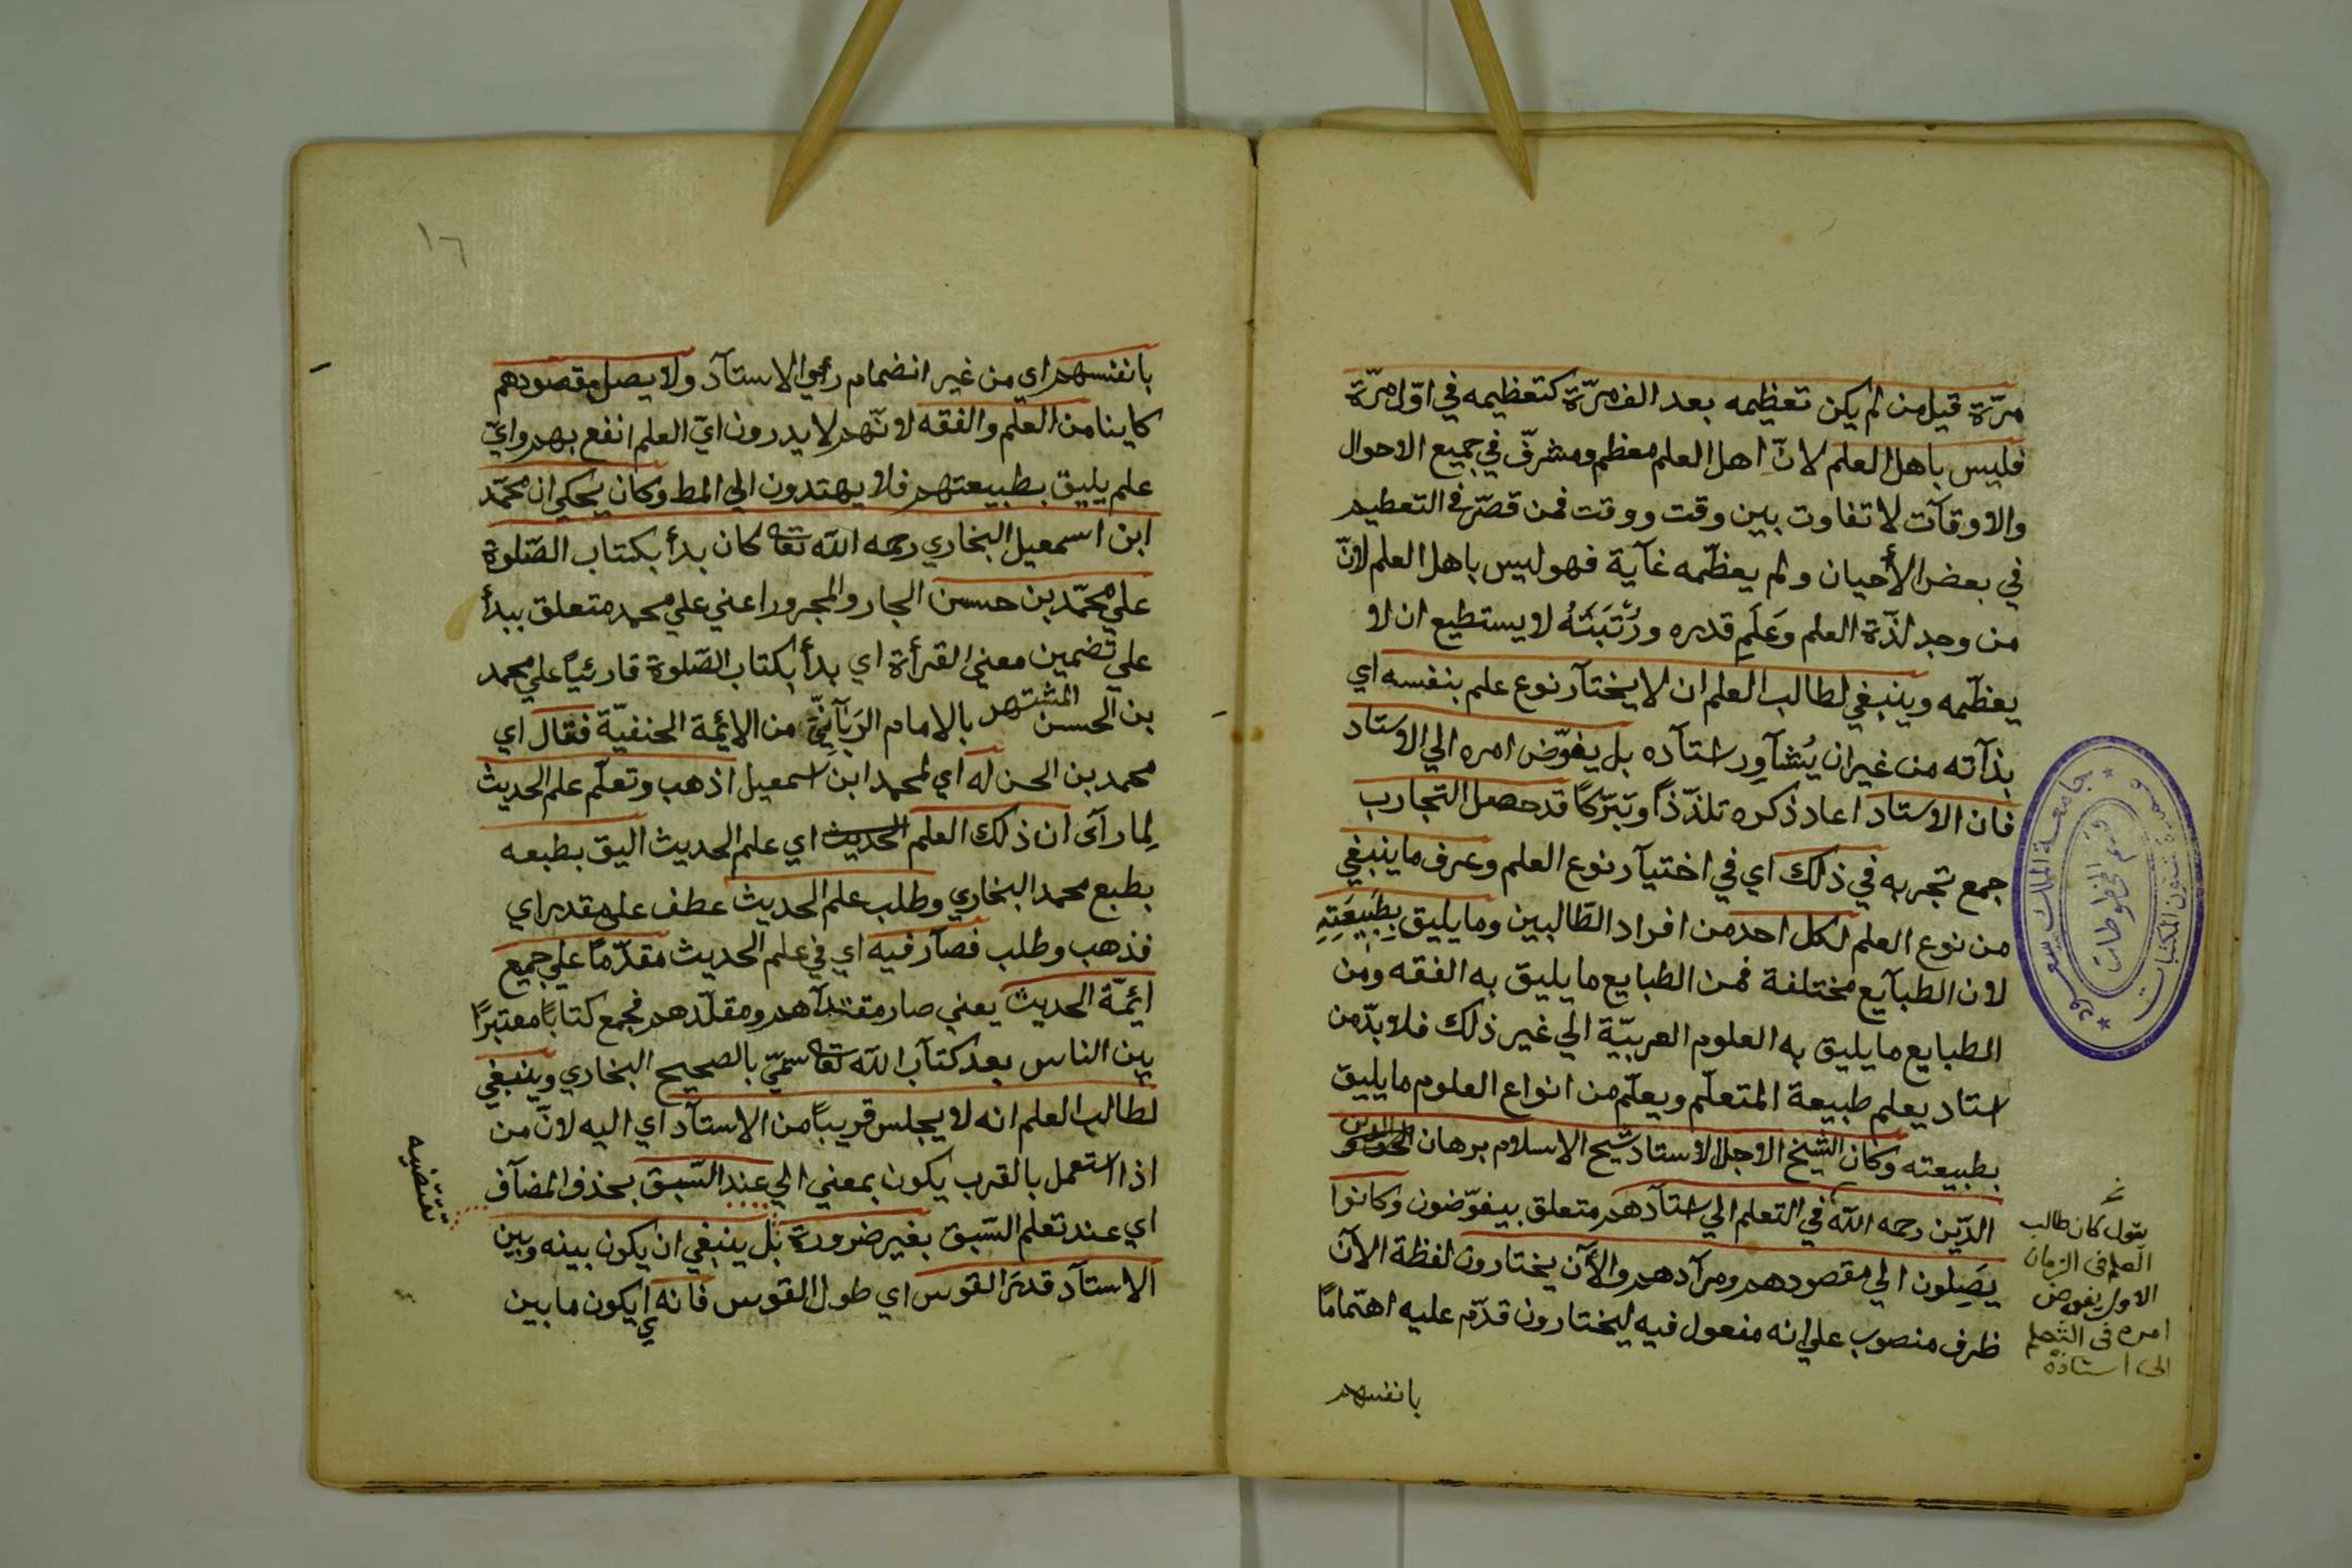 مرّة قيل من لم يكن تعظيمه بعد الف مرّة كتعظيمه في اوّل مرّة
فليس باهل العلم لانّ اهل العلم معظم ومشرفّ في جميع الاحوال
والاوقآت لا تفاوت بين وقت ووقت فمن قصّر في التعظيم
في بعض الأحيان ولم يعظّمه غآية فهو ليس باهل العلم لانّ
من وجد لذّة العلم وعَلَمِ قدره ورُتَبَتَهُ لا يستطيع ان لا
يعظّمه وينبغي لطالب العلم ان لا يختآر نوع علم بنفسه اي
بذآته من غير ان يُشآوِر استآده بل يفوّض امره الي الاستاد
فان الاستاد اعاد ذكره تلذّذاً وتبرّكاً قد حصل التجارب
جمع تجربه في ذلك اي في اختيآر نوع العلم وعرف ما ينبغي
من نوع العلم لكل احد من افراد الطّالبين وما يليق بِطَبِيعَتِهِ
لان الطبآيع مختلفة فمن الطبايع ما يليق به الفقه ومن
الطبايع ما يليق به العلوم العربيّة الي غير ذلك فلا بدّ من
استاد يعلم طبيعة المتعلّم ويعلّم من انواع العلوم ما يليق
بطبيعته وكان الشيخ الاجل الاستاد شيخ الاسلام برهان
الدّين رحمه الله في التعلم الي استآدهم متعلق بيفوّضون وكانوا
يَصِلون الي مقصودهم ومرآدهم والأن يختارون لفظة الآن
ظرف منصوب علي انه مفعول فيه ليختارون قدّم عليه اهتماماً
بانفسهم
يقول كان طالب
العلم فى الزمان
الاول يفوض
امره فى التعلم
الى استاذه
جامعة الملك سعود
عمادة شئون المكتبات
قسم المخطوطات
١٦
بانفسهم اي من غير انضمام رأي الاستآد ولا يصل مقصودهم
كاينا من العلم والفقه لانّهم لا يدرون ايّ العلم انفع بهم وايّ
علم يليق بطبيعتهم فلا يهتدون الي المط وكان يحكي ان محمّد
ابن اسمعيل البخاري رحمه الله تعا كان بدأ بكتاب الصّلوة
علي محمّد بن حسن الجار والمجرور اعني علي محمد متعلق ببدأ
علي تضمين معني القرأة اي بدأ بكتاب الصّلوة قارئياً علي محمد
بن الحسن المشتهر بالامام الرَبّآنِيّ من الائمة الحنفيّة فقال اي
محمد بن الحسن له اي لمحمد ابن اسمعيل اذهب وتعلّم علم الحديث
لِما رآى ان ذلك العلم الحديث اي علم الحديث اليق بطبعه
بطبع محمد البخاري وطلب علم الحديث عطف علي مقدر اي
فذهب وطلب فصآر فيه اي في علم الحديث مقدّماً علي جميع
ائمّة الحديث يعني صار مقتدآهم ومقلّدهم فجمع كتاباً معتبراً
بين الناس بعد كتآب الله تعا سمّي بالصحيح البخاري وينبغي
لطالب العلم انه لا يجلس قريباً من الاستآد اي اليه لانّ من
اذا استعمل بالقرب يكون بمعني الي عند السّبق بحذف المضآف
اي عند تعلم السّبق بغير ضرورة بل ينبغي ان يكون بينه وبين
الاستآد قدر القوس اي طول القوس فانه اي يكون ما بين
تقتضيه